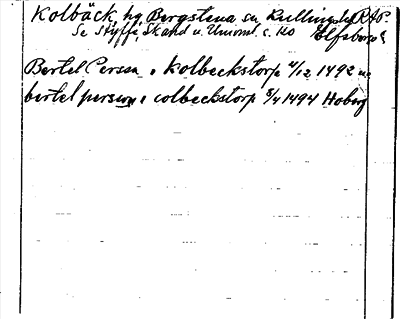 Kolbäck, hg Bergstena sn, Kullings hd RAP.
Se Styffe, Skand u. Unionst. s. 110 Elfsborgs l.
Bertel Persson i Kolbeckstorp 4/12 1492
bertel person i colbeckstorp 5/4 1494 Hoberg